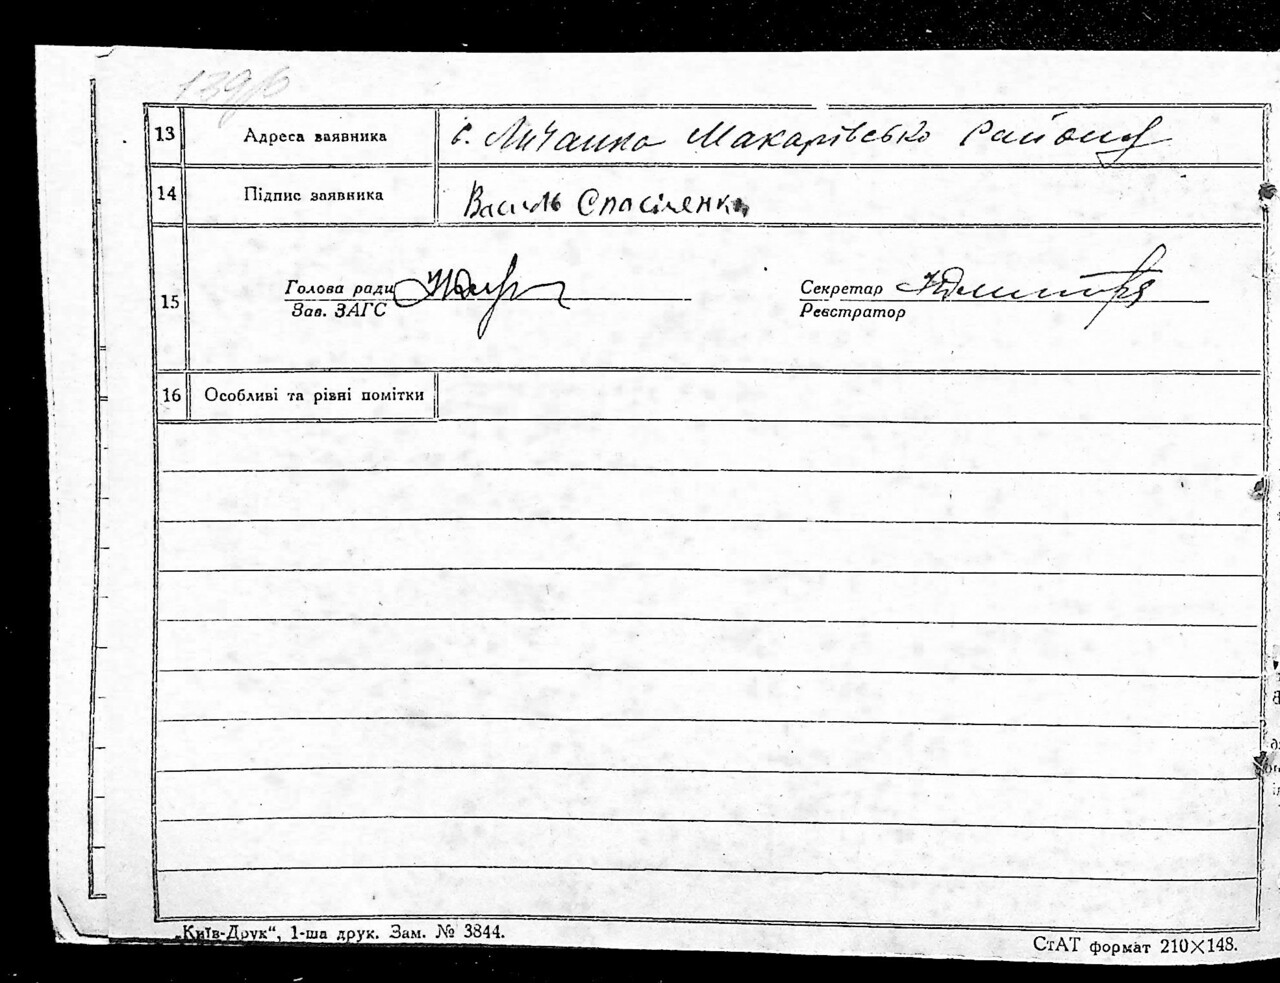 139об
13 Адреса заявника с. Личанка Макарівсько району
14 Підпис заявника Василь Спасіченко
15 Голова ради Секретар
Зав. ЗАГС Реєстратор
16 Особливі та різні помітки
„Київ-Друк“, 1-ша друк. Зам. № 3844.
СтАТ формат 210×148.